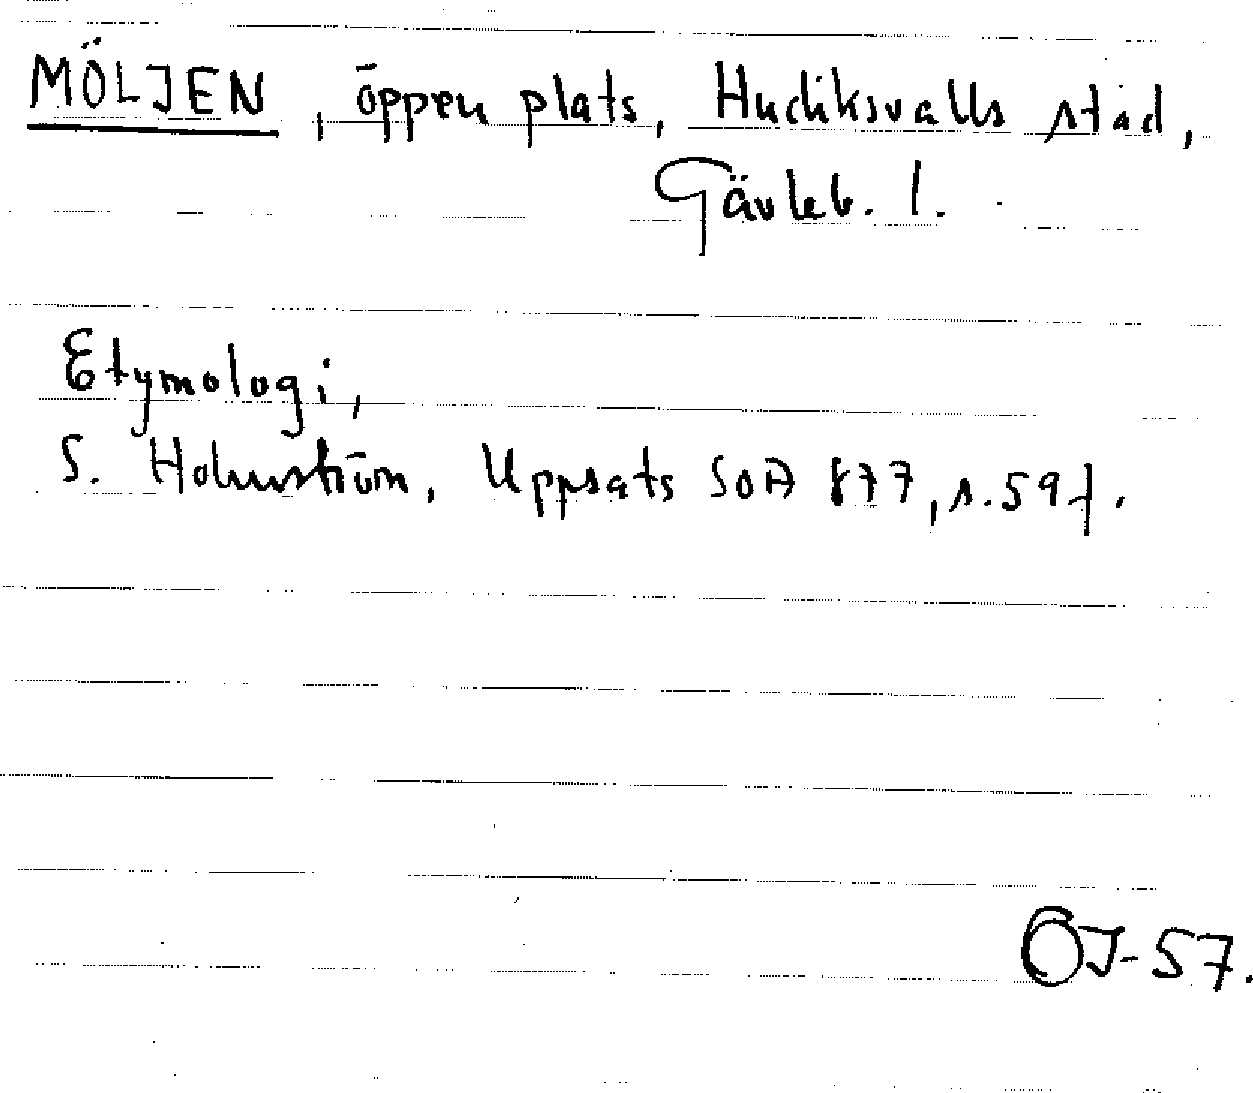 MÖLJEN, öppen plats, Hudiksvalls stad,
Gävleb. l.
Etymologi,
S. Holmström, Uppsats SOA 877, s. 59 f.
ÖJ-57.